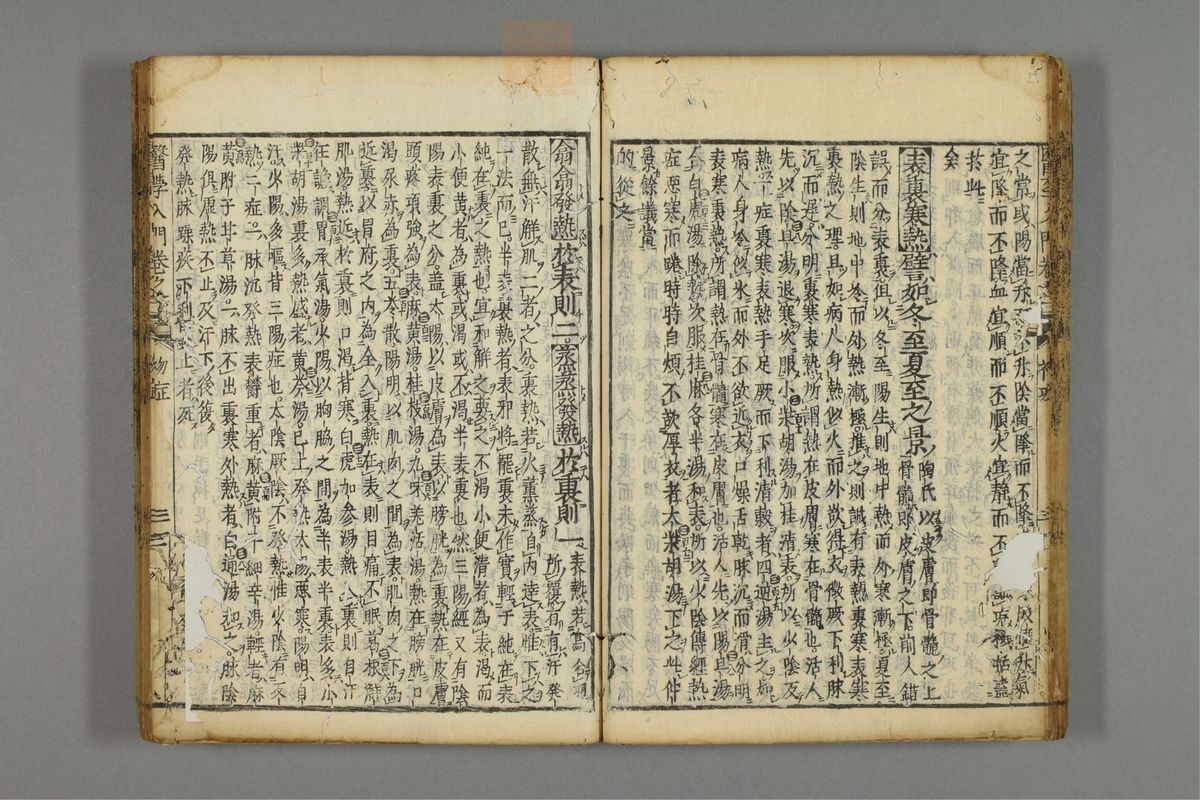 之常或陽當升而不升陰當降而不降
宜降而不降血宜順而不順火宜靜而不
於此
矣
表裏寒熱譬如冬至夏至之景
陶氏以皮膚即骨髓之上
骨髓即皮膚之下前人錯
誤而分表裏但以冬至陽生則地中熱而外寒漸極夏至
陰生則地中冷而外熱漸極推之則誠有表熱裏寒表寒
裏熱之理且如病人身熱似火而外欲得衣微厥下利脉
沉而遲分明裏寒表熱所謂熱在皮膚寒在骨髓也活人
先以陰旦湯退寒次服小柴胡湯加桂清表所以少陰反
熱一症裏寒表熱手足厥而下利清穀者四逆湯主之如
病人身冷似氷而外不欲近衣口燥舌乾脉沉而滑分明
表寒裏熱所謂熱在骨髓寒在皮膚也活人先以陽旦湯
合白虎湯除熱次服桂麻各半湯和表所以少陰傳經熱
症惡寒而踡時時自煩不欲厚衣者大柴胡湯下之此仲
景餘議當
的從
翕翕發熱於表則二蒸蒸發熱於裏則一
表熱若翕合羽
所覆者有汗發
散無汗解肌二者之分裏熱若火薰蒸自內達表惟下之
一法而已半表裏熱者表邪將罷裏未作實輕于純在表
純在裏之熱也宜和解之裏之不渴小便清者為表渴而
小便黄者為裏或渴或不渴半表裏也然三陽經又有陰
陽表裏之分盖太陽以皮膚為表以膀胱為裏熱在皮膚
頭疼項強為表麻黄湯桂枝湯九味羌活湯熱在膀胱口
渴尿赤為裏五苓散陽明以肌肉之間為表肌肉之下為
近裏以胃府之内為全入裏熱在表則目痛不眠葛根解
肌湯熱近於裏則口渴背寒白虎加参湯熱入裏則自汗
狂譫調胃承氣湯少陽以胸脇之間為半表半裏表多小
柴胡湯裏多熱盛者黄芩湯已上發熱太陽惡寒陽明自
汗少陽多嘔皆三陽症也太陰厥陰不發熱惟少陰有發
熱二症一脉沉發熱表欝重者麻黄附子細辛湯輕者麻
黄附子甘草湯一脉不出裏寒外熱者白通湯和之脉陰
陽俱虛熱不止及汗下後復
發熱脉躁疾下利不止者死
醫學入門卷之 傷症